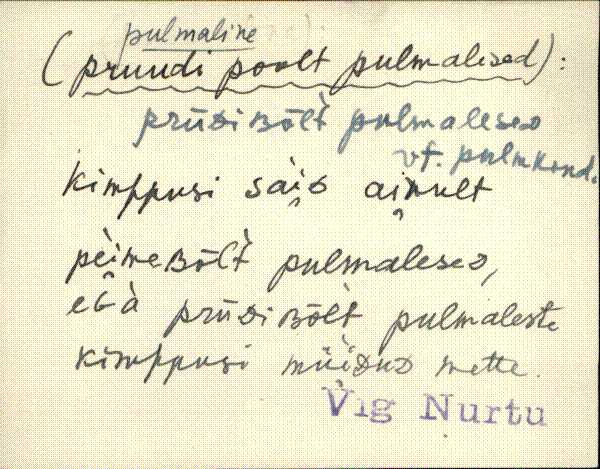 pulmaline
(pruudi poolt pulmalised):
prūᴅiʙōlt̀ pulmaleseᴅ
vt. pulmkond.
kimppusi sai̭ᴅ ai̭nult
pèi̭meʙōlt̀ pulmaleseᴅ,
eɢà prūᴅiʙōlt̀ pulmaleste
kimppusi müiᴅuᴅ mette.
Vig Nurtu